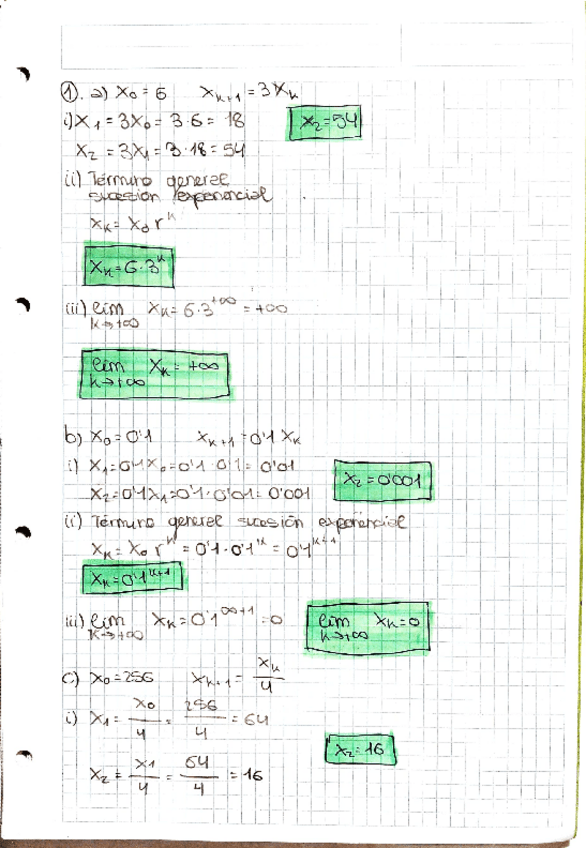 ①. a) X₀ = 6 Xₖ₊₁ = 3Xₖ
i) X₁ = 3X₀ = 3·6 = 18 X₂ = 54
X₂ = 3X₁ = 3·18 = 54
ii) Término general
sucesión exponencial
Xₖ = X₀ rᵏ
Xₖ = 6·3ᵏ
iii) lím Xₖ = 6·3⁺∞ = +∞
k→+∞
lím Xₖ = +∞
k→+∞
b) X₀ = 0'1 Xₖ₊₁ = 0'1 Xₖ
i) X₁ = 0'1X₀ = 0'1·0'1 = 0'01 X₂ = 0'001
X₂ = 0'1X₁ = 0'1·0'01 = 0'001
ii) Término general sucesión exponencial
Xₖ = X₀ rᵏ = 0'1·0'1ᵏ = 0'1ᵏ⁺¹
Xₖ = 0'1ᵏ⁺¹
iii) lím Xₖ = 0'1^∞+1 = 0 lím Xₖ = 0
k→+∞ k→+∞
c) X₀ = 256 Xₖ₊₁ = Xₖ/4
i) X₁ = X₀/4 = 256/4 = 64
X₂ = 16
X₂ = X₁/4 = 64/4 = 16